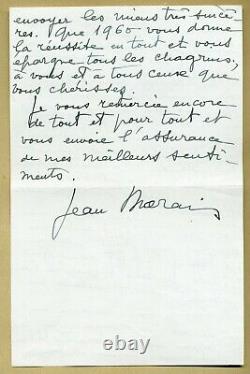 envoyer les miens très sincè
res. Que 1960 vous donne
la réussite en tout et vous
épargne tous les chagrins,
à vous et à tous ceux que
vous chérissez.
Je vous remercie encore
de tout et pour tout et
vous envoie l'assurance
de mes meilleurs senti
ments.
Jean Marais
thcenturycollect.com